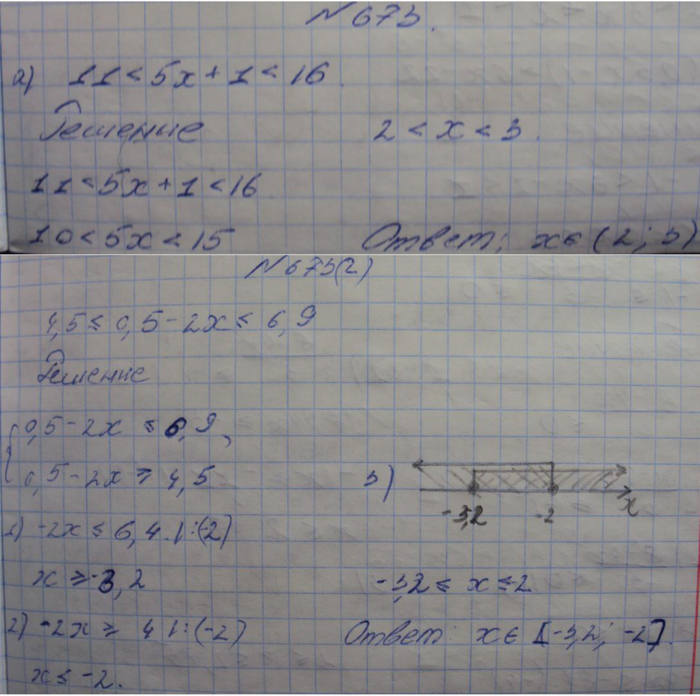 № 673.
а) 11 < 5x + 1 < 16.
Решение
2 < x < 3.
11 < 5x + 1 < 16
10 < 5x < 15
Ответ: x ∈ (2; 3)
№ 673(2)
4,5 ≤ 0,5 - 2x ≤ 6,9
Решение
{ 0,5 - 2x ≤ 6,9,
0,5 - 2x ≥ 4,5
1) -2x ≤ 6,4 | :(-2)
x ≥ -3,2
2) -2x ≥ 4 | :(-2)
x ≤ -2.
3)
-3,2 -2 x
-3,2 ≤ x ≤ -2
Ответ: x ∈ [-3,2; -2].